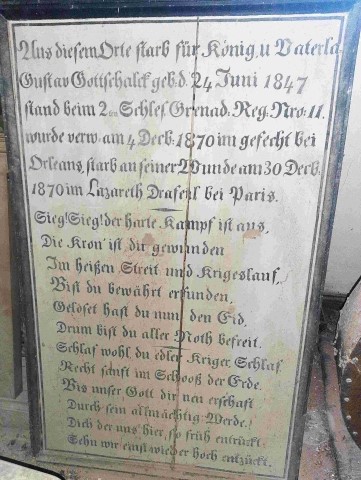 Aus diesem Orte starb für König u Vaterla
Gustav Gottschalck geb d. 24 Juni 1847
stand beim 2ten Schles. Grenad. Reg. Nro: 11.
wurde verw. am 4 Decb. 1870 im gefecht bei
Orleans, starb an seiner Wunde am 30 Decb.
1870 im Lazareth Draferl bei Paris.
Sieg! Sieg! der harte Kampf ist aus,
Die Kron' ist dir gewunden
Im heißen Streit und Krigeslauf,
Bist du bewährt erfunden,
Gelöset hast du nun den Eid,
Drum bist du aller Noth befreit.
Schlaf wohl du edler Kriger, Schlaf
Recht sanft im Schooß der Erde.
Bis unser Gott dir neu erschaft
Durch sein allmächtig: Werde!
Dich der uns hier, so früh entrückt,
Sehn wir einst wieder hoch entzückt.